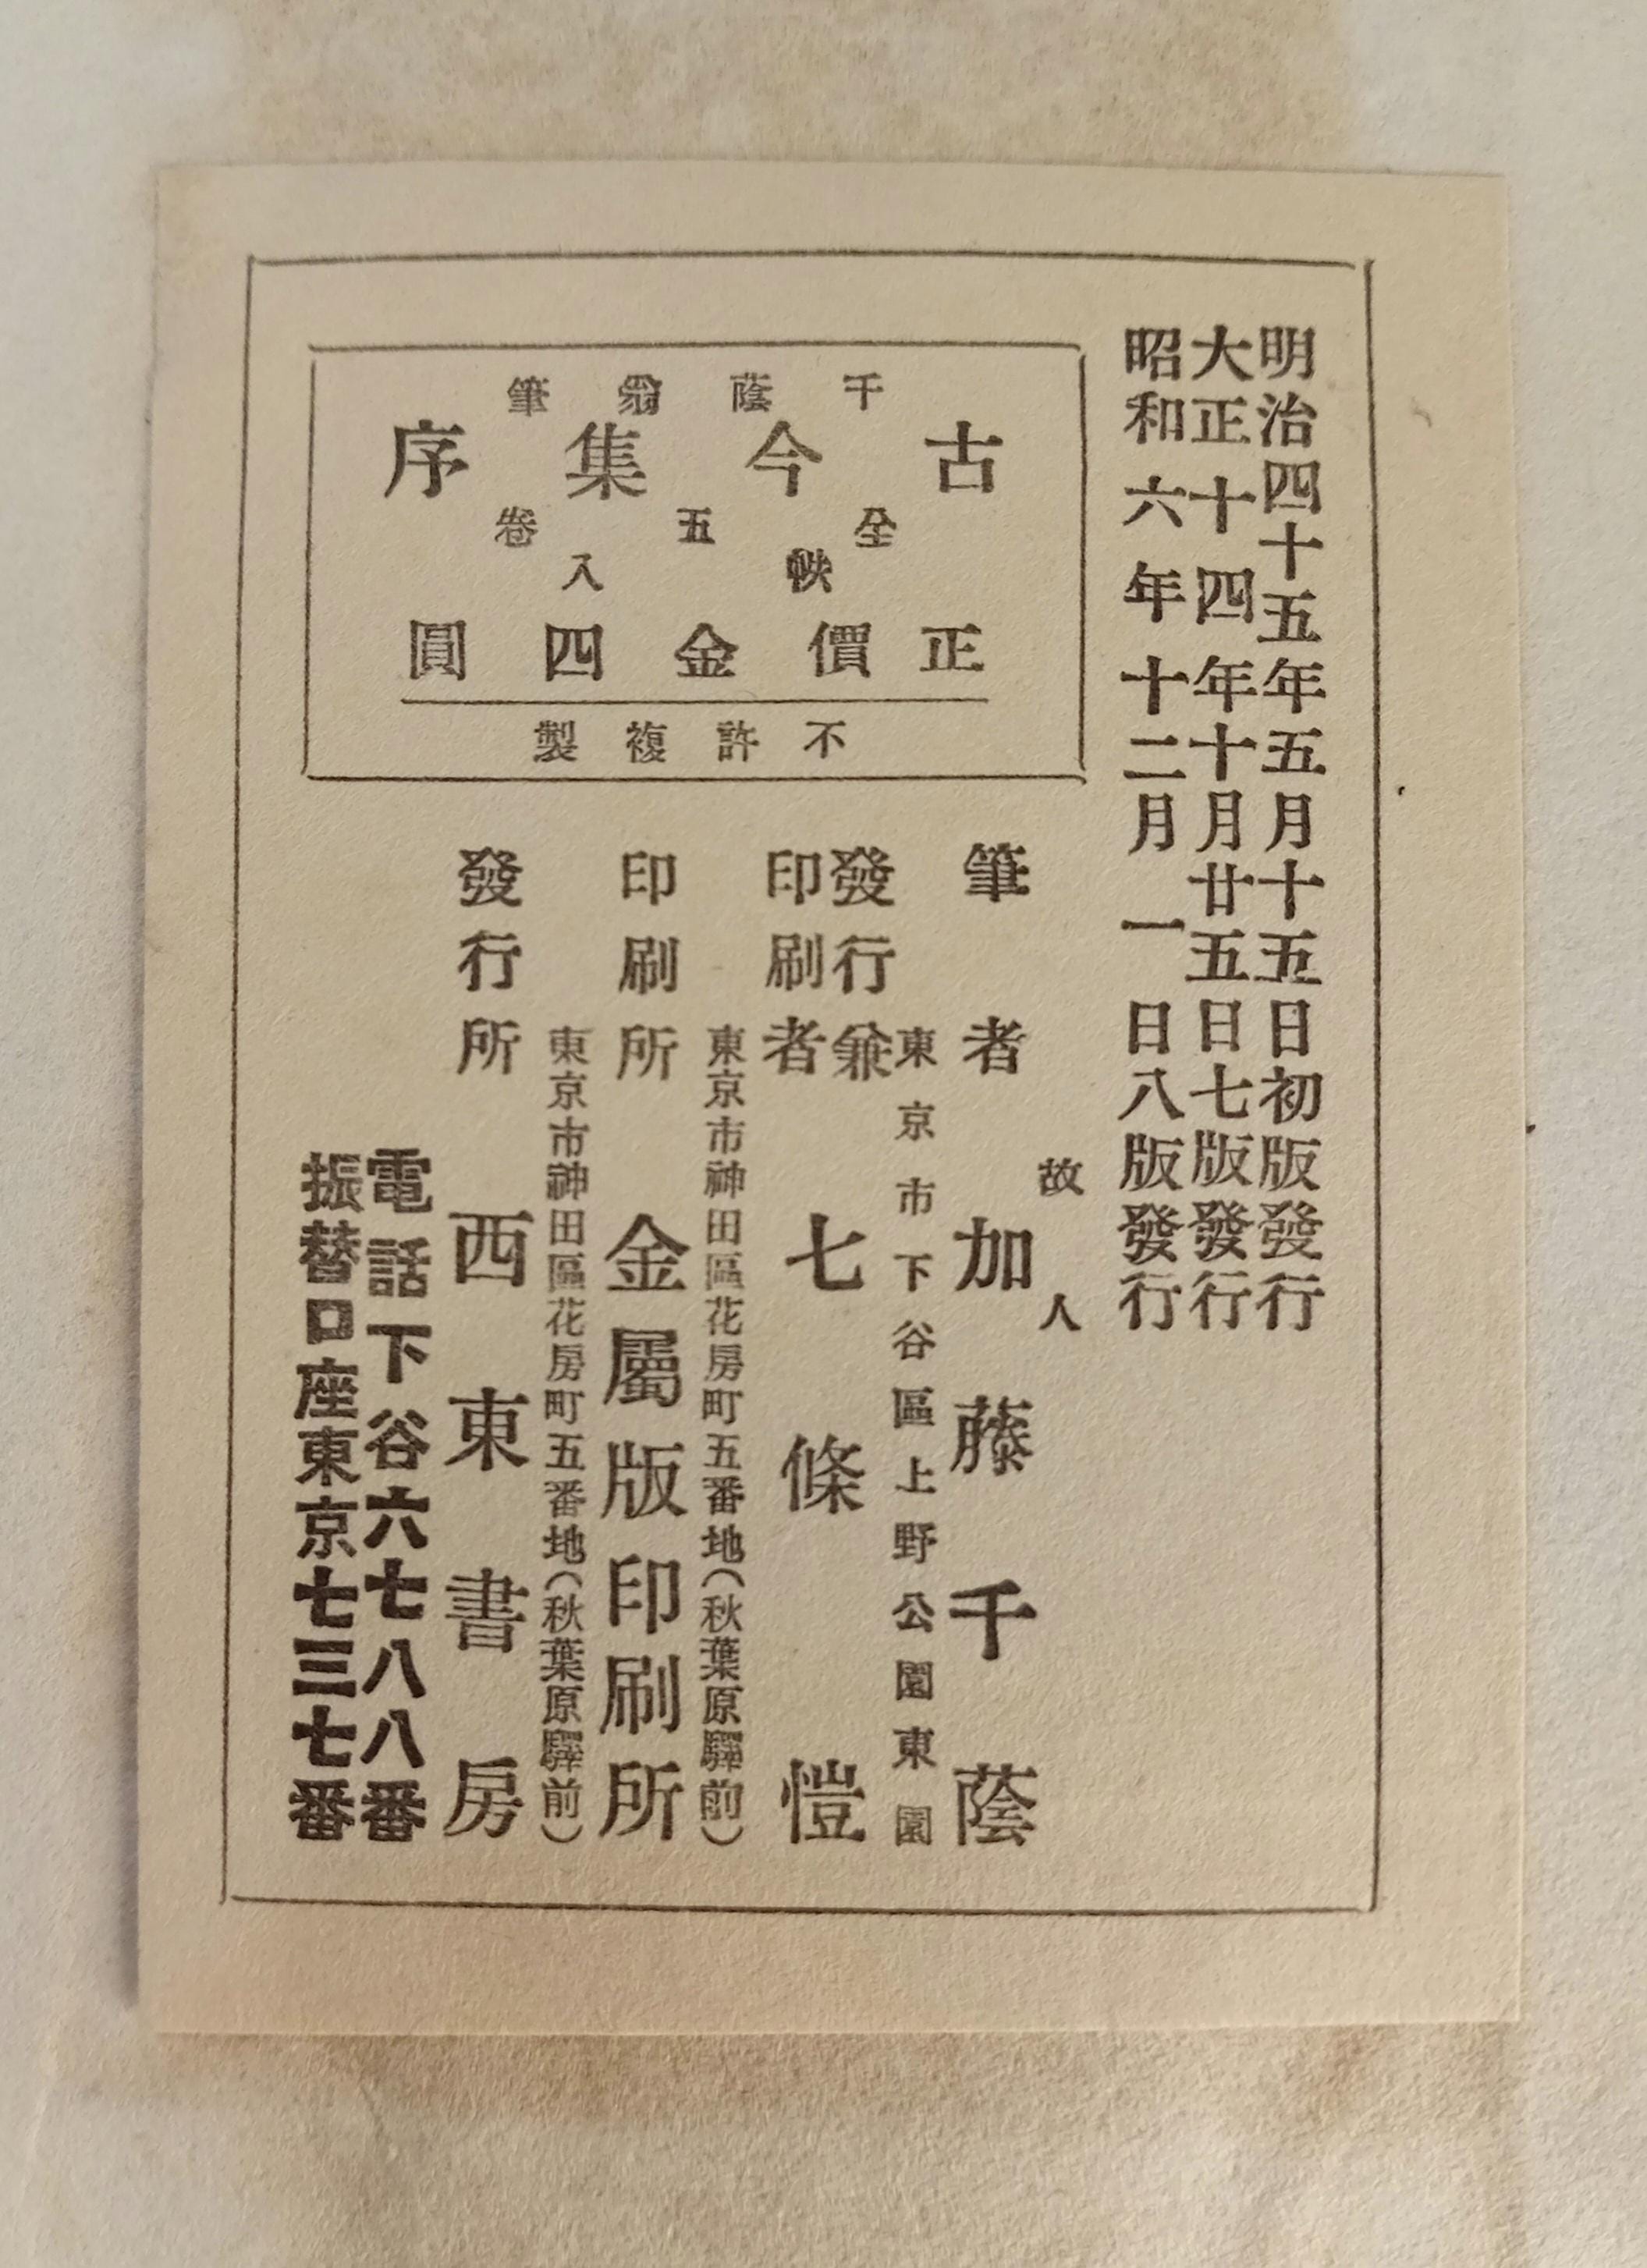 明治四十五年五月十五日初版發行
大正十四年十月廿五日七版發行
昭和六年十二月一日八版發行
千蔭翁筆
古今集序
全五卷
帙入
正價金四圓
不許複製
筆者
故人
加藤千蔭
東京市下谷區上野公園東園
發行兼
印刷者
七條愷
東京市神田區花房町五番地(秋葉原驛前)
印刷所
金屬版印刷所
東京市神田區花房町五番地(秋葉原驛前)
發行所
西東書房
電話下谷六七八八番
振替口座東京七三七番